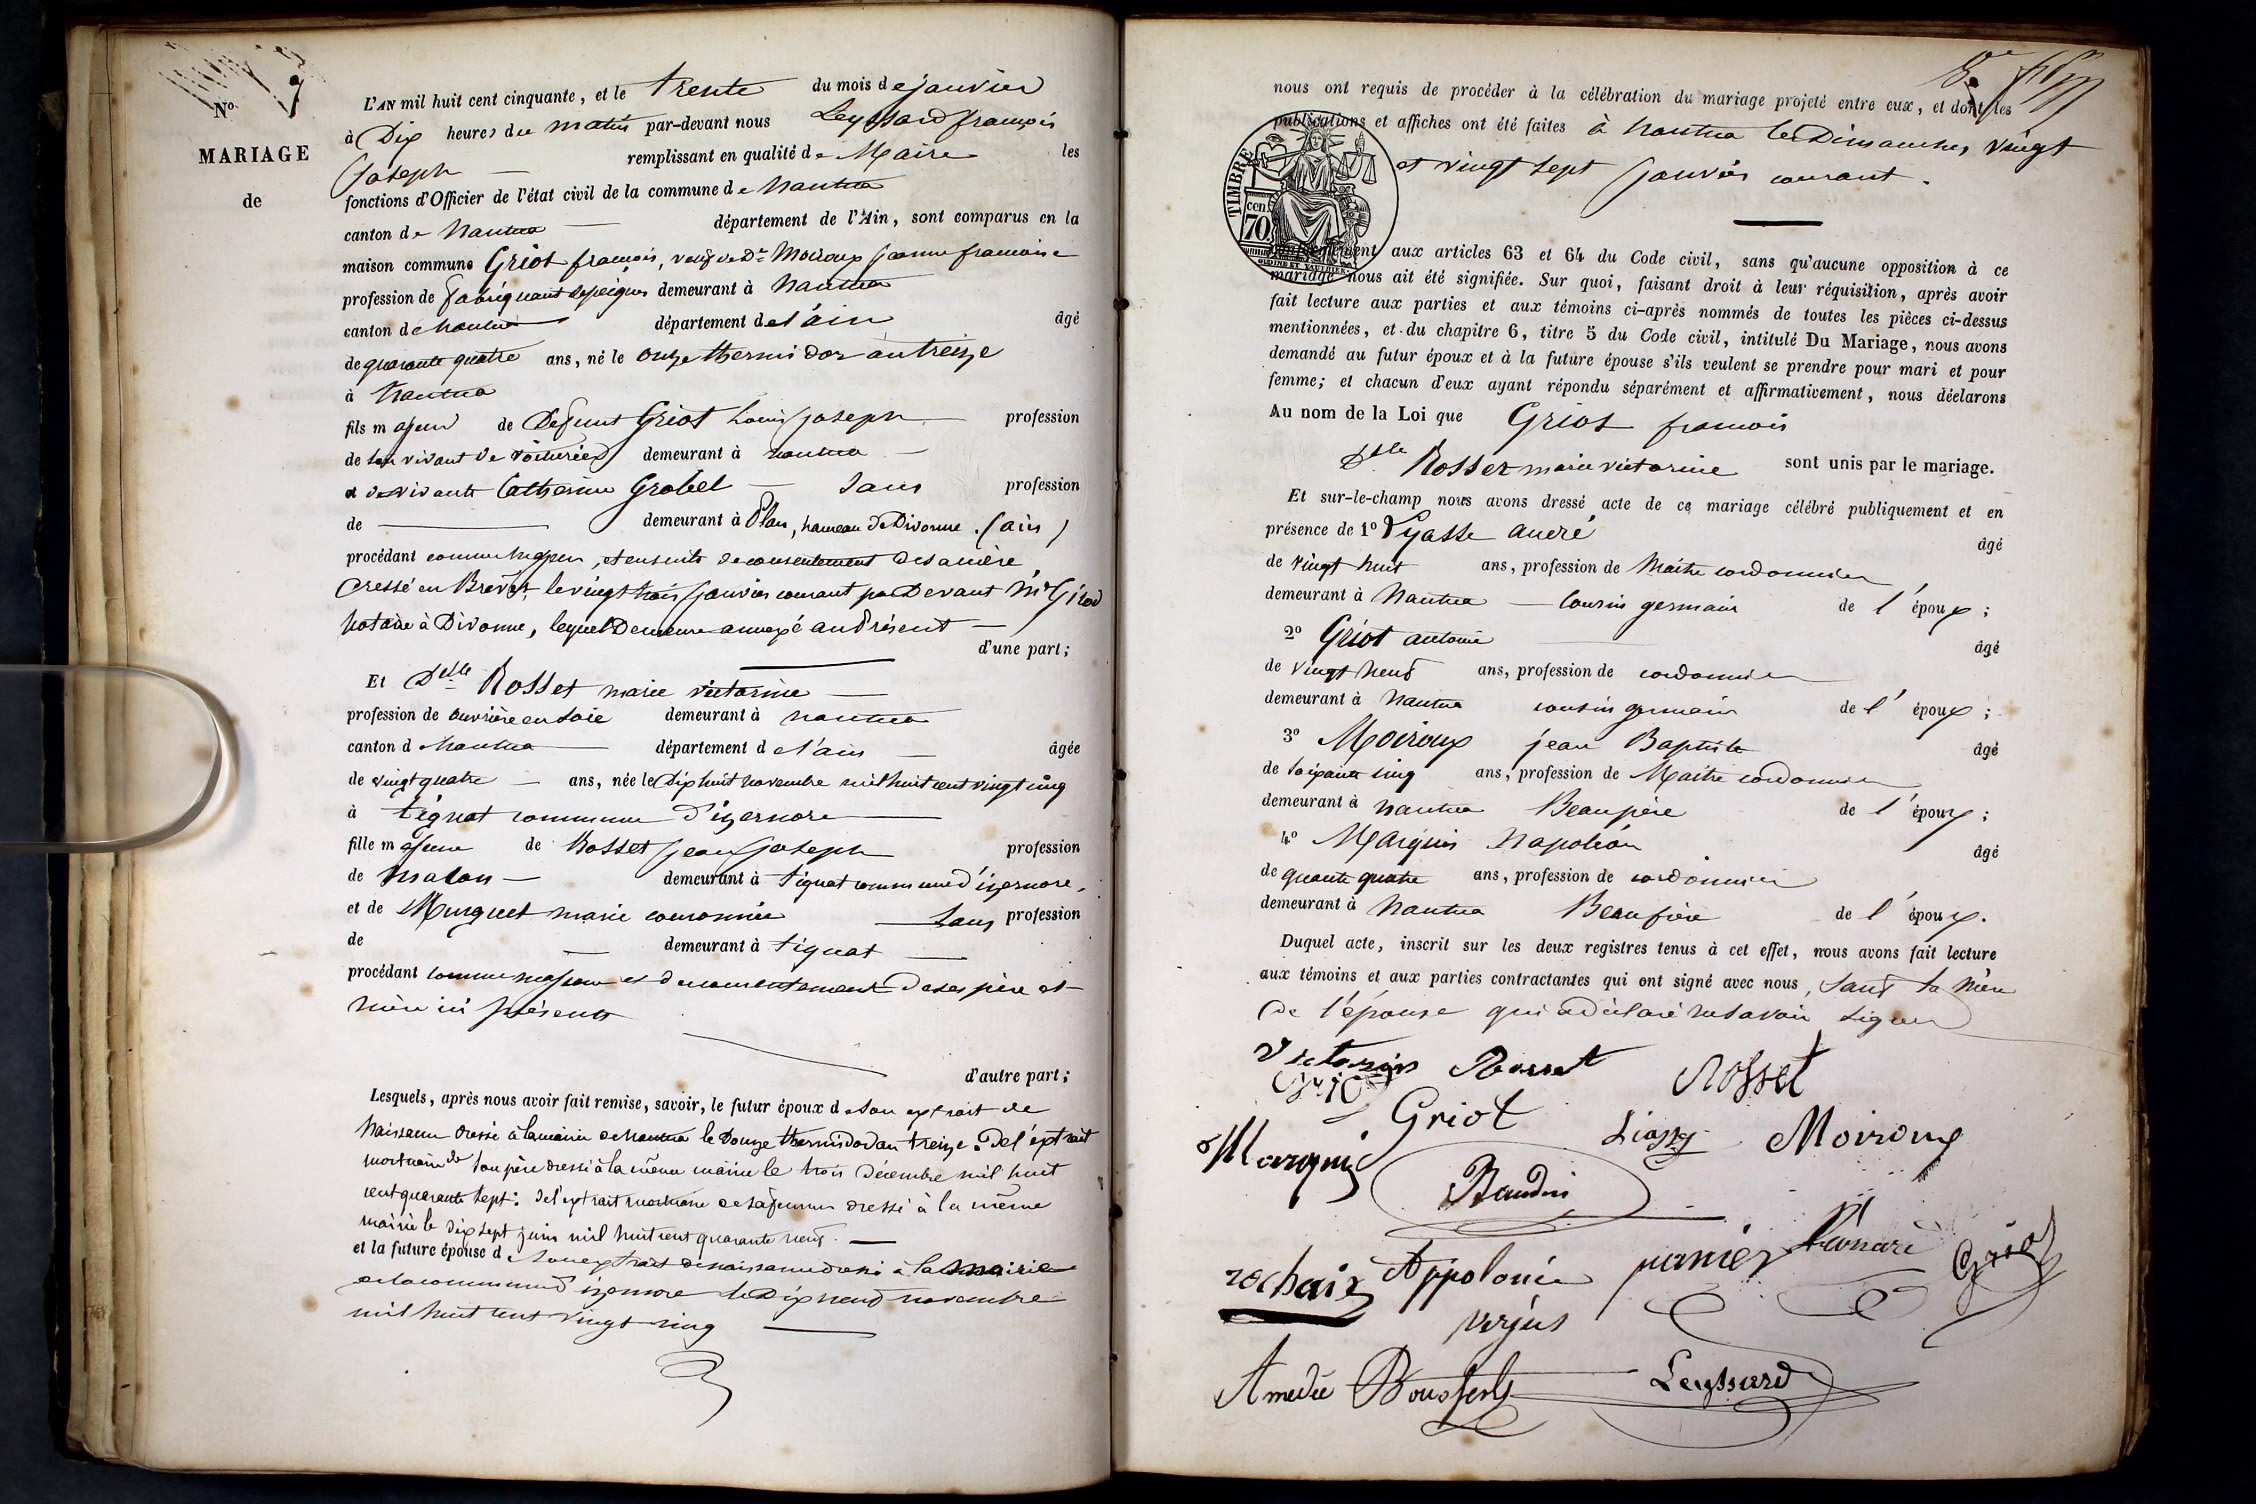 Nº 7
MARIAGE
de
L'AN mil huit cent cinquante, et le trente du mois de janvier
à Dix heures du matin par-devant nous Leyssard françois
Joseph remplissant en qualité de Maire les
fonctions d'Officier de l'état civil de la commune de Nantua
canton de Nantua département de l'Ain, sont comparus en la
maison commune Griot françois, veuf de De Moiroux Jeanne francoise
profession de fabriquant de peignes demeurant à Nantua
canton de Nantua département de l'ain âgé
de quarante quatre ans, né le onze thermidor an treize
à Nantua
fils majeur de Defunt Griot Louis Joseph profession
de son vivant de voiturier demeurant à nantua
et de vivante Catherine Grobel Sans profession
de demeurant à Plan, hameau de Divonne. (ain)
procédant comme majeur, et ensuite de consentement de sa mère
dressé en Brevet, le vingt trois Janvier courant par Devant Me Girod
Notaire à Divonne, lequel Demeure annexé au Présent
d'une part;
Et Delle Rosset marie victorine
profession de ouvrière en soie demeurant à nantua
canton de Nantua département de l'ain âgée
de vingt quatre ans, née le Dix huit novembre mil huit cent vingt cinq
à tignat commune d'izernore
fille majeure de Rosset Jean Joseph profession
de maçon demeurant à tignat commune d'izernore,
et de Murguet marie couronnée Sans profession
de demeurant à tignat
procédant comme majeure et du consentement de ses père et
mère ici présents
d'autre part;
Lesquels, après nous avoir fait remise, savoir, le futur époux de son extrait de
Naissance dressé à la mairie de Nantua le Douze thermidor an treize. De l'extrait
mortuaire de son père dressé à la même mairie le trois Décembre mil huit
cent quarante sept: de l'extrait mortuaire de sa femme dressé à la même
mairie le dix sept juin mil huit cent quarante neuf.
et la future épouse de son extrait de naissance dressé à la mairie
de la commune d'izernore le Dix neuf novembre
mil huit cent vingt cinq
nous ont requis de procéder à la célébration du mariage projeté entre eux, et dont les
publications et affiches ont été faites à Nantua les Dimanches vingt
et vingt sept Janvier courant.
TIMBRE
cen.
70.
aux articles 63 et 64 du Code civil, sans qu'aucune opposition à ce
mariage nous ait été signifiée. Sur quoi, faisant droit à leur réquisition, après avoir
fait lecture aux parties et aux témoins ci-après nommés de toutes les pièces ci-dessus
mentionnées, et du chapitre 6, titre 5 du Code civil, intitulé Du Mariage, nous avons
demandé au futur époux et à la future épouse s'ils veulent se prendre pour mari et pour
femme; et chacun d'eux ayant répondu séparément et affirmativement, nous déclarons
Au nom de la Loi que Griot francois
Delle Rosset marie victorine sont unis par le mariage.
Et sur-le-champ nous avons dressé acte de ce mariage célébré publiquement et en
présence de 1º André âgé
de vingt huit ans, profession de Maitre cordonnier
demeurant à Nantua Cousin germain de l'époux;
2º Griot antoine âgé
de vingt neuf ans, profession de cordonnier
demeurant à Nantua cousin germain de l'époux;
3º Moiroux jean Baptiste âgé
de soixante cinq ans, profession de Maitre cordonnier
demeurant à nantua Beaupère de l'époux;
4º Marquis Napoléon âgé
de quarante quatre ans, profession de cordonnier
demeurant à Nantua Beaufrère de l'époux.
Duquel acte, inscrit sur les deux registres tenus à cet effet, nous avons fait lecture
aux témoins et aux parties contractantes qui ont signé avec nous, sauf la Mère
de l'épouse qui a déclaré ne savoir signer
Rosset Rosset
Griot Moiroux
Marquis
Baudin
rochaix Appolonie panier
verjus
Amedée Leyssard